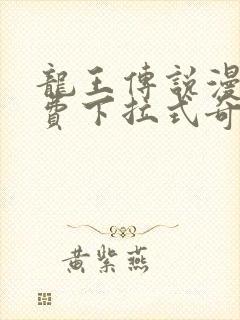 龍王傳說漫
費下拉式奇
黃紫燕